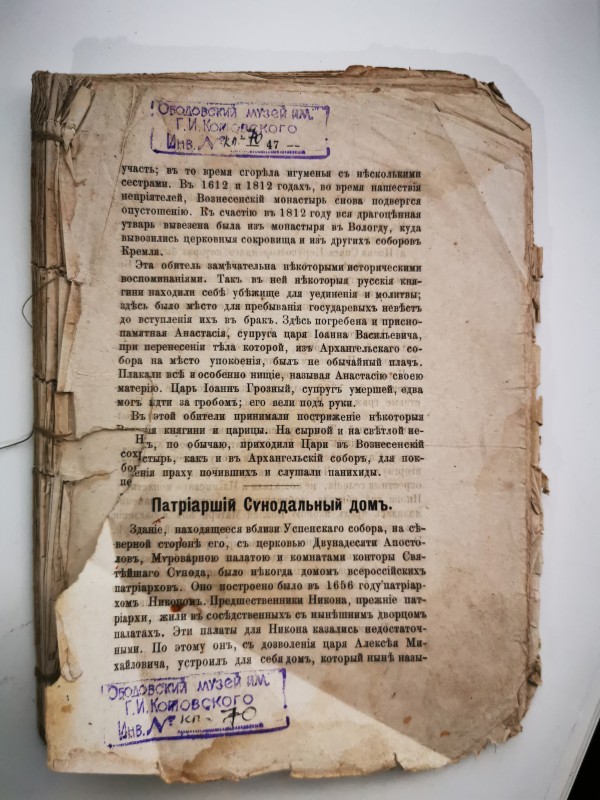 ОБОДОВСКИЙ МУЗЕЙ ИМ.
Г.И. КОТОВСКОГО
ИНВ. № кп-70
47
участь; въ то время сгорѣла игуменья съ нѣсколькими
сестрами. Въ 1612 и 1812 годахъ, во время нашествія
непріятелей, Вознесенскій монастырь снова подвергся
опустошенію. Къ счастію въ 1812 году вся драгоцѣнная
утварь вывезена была изъ монастыря въ Вологду, куда
вывозились церковныя сокровища и изъ другихъ соборовъ
Кремля.
Эта обитель замѣчательна нѣкоторыми историческими
воспоминаніями. Такъ въ ней нѣкоторыя русскія кня-
гини находили себѣ убѣжище для уединенія и молитвы;
здѣсь было мѣсто для пребыванія государевыхъ невѣстъ
до вступленія ихъ въ бракъ. Здѣсь погребена и присно-
памятная Анастасія, супруга царя Іоанна Васильевича,
при перенесеніи тѣла которой, изъ Архангельскаго со-
бора на мѣсто упокоенія, былъ не обычайный плачъ.
Плакали всѣ и особенно нищіе, называя Анастасію своею
матерію. Царь Іоаннъ Грозный, супругъ умершей, едва
могъ идти за гробомъ; его вели подъ руки.
Въ этой обители принимали постриженіе нѣкоторыя
княгини и царицы. На сырной и на свѣтлой не-
Н
хъ, по обычаю, приходили Цари въ Вознесенскій
сох
стырь, какъ и въ Архангельскій соборъ, для пок-
бог
енія праху почившихъ и слушали панихиды.
це
Патріаршій Сѵнодальный домъ.
Зданіе, находящееся вблизи Успенскаго собора, на сѣ-
верной сторонѣ его, съ церковью Двунадесяти Апосто-
ловъ, Мѵроварною палатою и комнатами конторы Свя-
тѣйшаго Сѵнода, было нѣкогда домомъ всероссійскихъ
патріарховъ. Оно построено было въ 1656 году патріар-
хомъ Никономъ. Предшественники Никона, прежніе пат-
ріархи, жили въ сосѣдственныхъ съ нынѣшнимъ дворцомъ
палатахъ. Эти палаты для Никона казались недостаточ-
ными. По этому онъ, съ дозволенія царя Алексѣя Ми-
хайловича, устроилъ для себя домъ, который нынѣ назы-
ОБОДОВСКИЙ МУЗЕЙ ИМ.
Г.И. КОТОВСКОГО
ИНВ. № кп-70